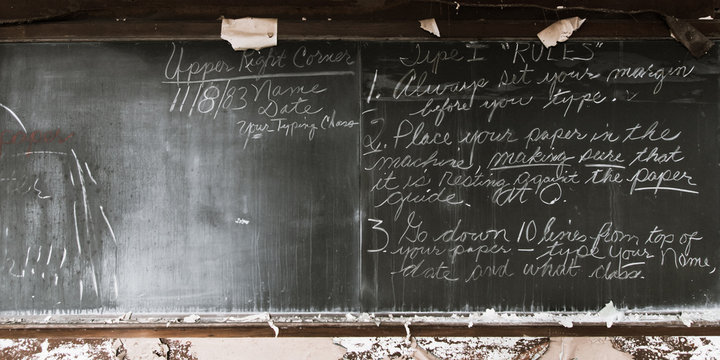 Upper Right Corner
11/8/83 Name
Date
Your Typing Class
Type I "RULES"
1. Always set your margin
before you type.
2. Place your paper in the
machine, making sure that
it is resting against the paper
guide. at 0.
3 Go down 10 lines from top of
your paper — type your Name,
date and what class.
!!!